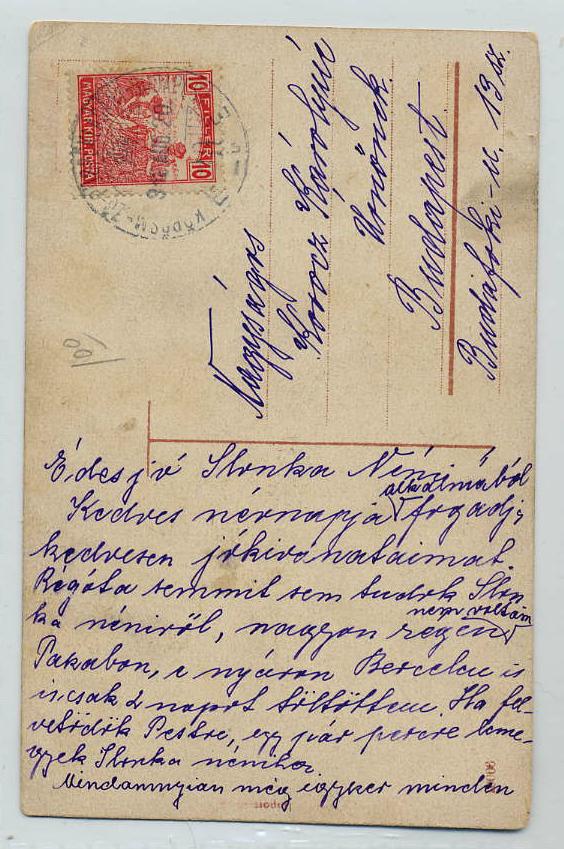 10 FILLÉR 10
MAGYAR KIR. POSTA
100
Nagyságos
Korocz Károlyné
Urnőnek
Budapest.
Budafoki-u. 13 sz.
Édes jó Ilonka Néni!
Kedves névnapja alkalmából fogadj;
kedvesen jókivánataimat.
Régóta semmit sem tudok Ilon
ka néniről, nagyon régen nem voltam
Pakabon, a nyáron Bercelen is
is csak 2 napot töltöttem. Ha fel-
vetődök Pestre, egy pár percre leme-
gyek Ilonka nénihez
Mindannyian még egyszer minden